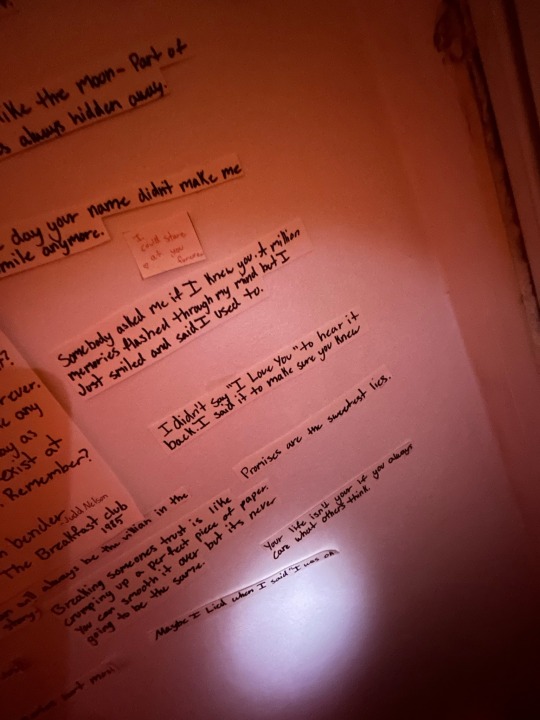 like the moon- Part of
s always hidden away.
day your name didn't make me
mile anymore.
I
could stare
at you
forever
Somebody asked me if I knew you. A million
memories flashed through my mind but I
Just smiled and said I used to.
I didn't say "I Love You" to hear it
back. I said it to make sure you knew
Promises are the sweetest lies.
ever.
any
as
exist at
. Remember?
bender
Judd Nelson
The Breakfast club
1985
will always be the villian in the
Breaking someones trust is like
crumping up a perfect piece of paper.
You can smooth it over but it's never
going to be the same.
Your life isn't your if you always
care what others think.
Maybe I Lied when I said "I was ok